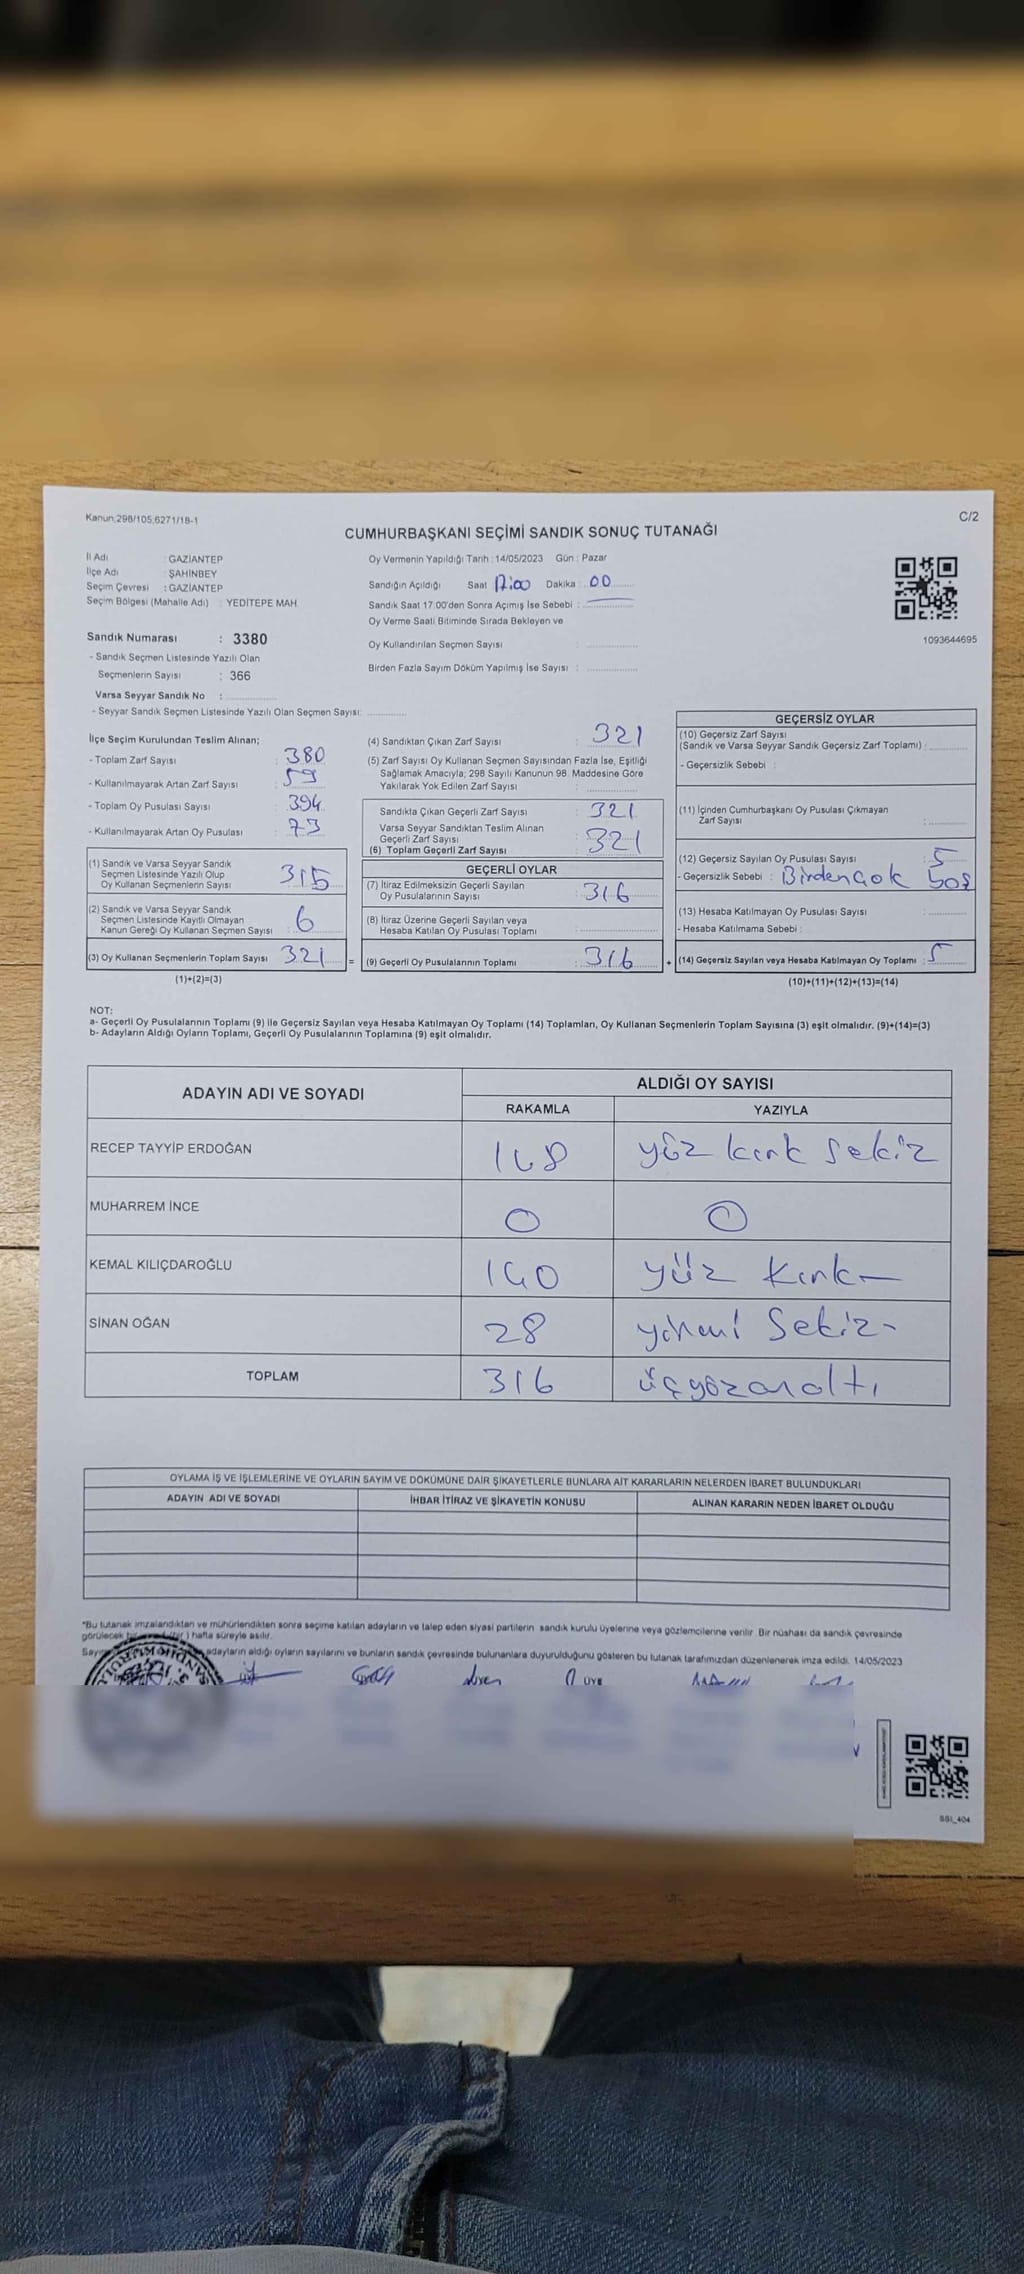 Kanun;298/105,6271/18-1
C/2
CUMHURBAŞKANI SEÇİMİ SANDIK SONUÇ TUTANAĞI
İl Adı : GAZİANTEP
İlçe Adı : ŞAHİNBEY
Seçim Çevresi : GAZİANTEP
Seçim Bölgesi (Mahalle Adı) : YEDİTEPE MAH.
Oy Vermenin Yapıldığı Tarih : 14/05/2023 Gün : Pazar
Sandığın Açıldığı Saat 17:00 Dakika : 00
Sandık Saat 17:00'den Sonra Açımış İse Sebebi :
Oy Verme Saati Bitiminde Sırada Bekleyen ve
Oy Kullandırılan Seçmen Sayısı :
Birden Fazla Sayım Döküm Yapılmış İse Sayısı :
1093644695
Sandık Numarası : 3380
- Sandık Seçmen Listesinde Yazılı Olan
Seçmenlerin Sayısı : 366
Varsa Seyyar Sandık No :
- Seyyar Sandık Seçmen Listesinde Yazılı Olan Seçmen Sayısı:
İlçe Seçim Kurulundan Teslim Alınan;
- Toplam Zarf Sayısı : 380
- Kullanılmayarak Artan Zarf Sayısı : 59
- Toplam Oy Pusulası Sayısı : 394
- Kullanılmayarak Artan Oy Pusulası : 73
(1) Sandık ve Varsa Seyyar Sandık
Seçmen Listesinde Yazılı Olup
Oy Kullanan Seçmenlerin Sayısı : 315
(2) Sandık ve Varsa Seyyar Sandık
Seçmen Listesinde Kayıtlı Olmayan
Kanun Gereği Oy Kullanan Seçmen Sayısı : 6
(3) Oy Kullanan Seçmenlerin Toplam Sayısı : 321 =
(1)+(2)=(3)
(4) Sandıktan Çıkan Zarf Sayısı : 321
(5) Zarf Sayısı Oy Kullanan Seçmen Sayısından Fazla İse, Eşitliği
Sağlamak Amacıyla; 298 Sayılı Kanunun 98. Maddesine Göre
Yakılarak Yok Edilen Zarf Sayısı :
Sandıkta Çıkan Geçerli Zarf Sayısı : 321
Varsa Seyyar Sandıktan Teslim Alınan
Geçerli Zarf Sayısı :
(6) Toplam Geçerli Zarf Sayısı : 321
GEÇERLİ OYLAR
(7) İtiraz Edilmeksizin Geçerli Sayılan
Oy Pusulalarının Sayısı : 316
(8) İtiraz Üzerine Geçerli Sayılan veya
Hesaba Katılan Oy Pusulası Toplamı :
(9) Geçerli Oy Pusulalarının Toplamı : 316 +
GEÇERSİZ OYLAR
(10) Geçersiz Zarf Sayısı
(Sandık ve Varsa Seyyar Sandık Geçersiz Zarf Toplamı) :
- Geçersizlik Sebebi :
(11) İçinden Cumhurbaşkanı Oy Pusulası Çıkmayan
Zarf Sayısı :
(12) Geçersiz Sayılan Oy Pusulası Sayısı : 5
- Geçersizlik Sebebi : Birden çok boş
(13) Hesaba Katılmayan Oy Pusulası Sayısı :
- Hesaba Katılmama Sebebi :
(14) Geçersiz Sayılan veya Hesaba Katılmayan Oy Toplamı : 5
(10)+(11)+(12)+(13)=(14)
NOT:
a- Geçerli Oy Pusulalarının Toplamı (9) ile Geçersiz Sayılan veya Hesaba Katılmayan Oy Toplamı (14) Toplamları, Oy Kullanan Seçmenlerin Toplam Sayısına (3) eşit olmalıdır. (9)+(14)=(3)
b- Adayların Aldığı Oyların Toplamı, Geçerli Oy Pusulalarının Toplamına (9) eşit olmalıdır.
ADAYIN ADI VE SOYADI
ALDIĞI OY SAYISI
RAKAMLA YAZIYLA
RECEP TAYYİP ERDOĞAN 148 yüz kırk sekiz
MUHARREM İNCE 0 0
KEMAL KILIÇDAROĞLU 140 yüz kırk
SİNAN OĞAN 28 yirmi sekiz
TOPLAM 316 üçyüzonaltı
OYLAMA İŞ VE İŞLEMLERİNE VE OYLARIN SAYIM VE DÖKÜMÜNE DAİR ŞİKAYETLERLE BUNLARA AİT KARARLARIN NELERDEN İBARET BULUNDUKLARI
ADAYIN ADI VE SOYADI İHBAR İTİRAZ VE ŞİKAYETİN KONUSU ALINAN KARARIN NEDEN İBARET OLDUĞU
*Bu tutanak imzalandıktan ve mühürlendikten sonra seçime katılan adayların ve talep eden siyasi partilerin sandık kurulu üyelerine veya gözlemcilerine verilir. Bir nüshası da sandık çevresinde
görülecek bir hafta süreyle asılır.
adayların aldığı oyların sayılarını ve bunların sandık çevresinde bulunanlara duyurulduğunu gösteren bu tutanak tarafımızdan düzenlenerek imza edildi. 14/05/2023
SSI_404